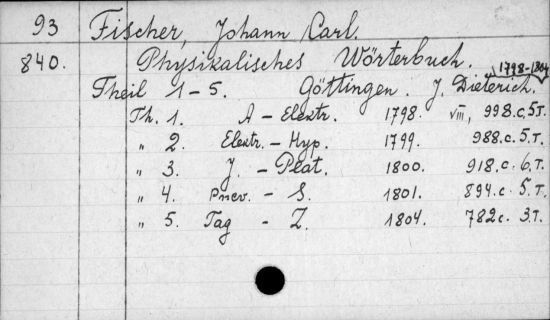 93 Fischer, Johann Carl.
840. Physikalisches Wörterbuch.
1798-1804
Theil 1-5. Göttingen. J. Dieterich.
Th. 1. A - Elektr. 1798. VIII, 998.c. 5T.
„ 2. Elektr. - Hyp. 1799. 988.c. 5.T.
„ 3. J. - Plat. 1800. 918.c. 6.T.
„ 4. Pnev. - S. 1801. 894.c. 5.T.
„ 5. Tag - Z. 1804. 782c. 3.T.